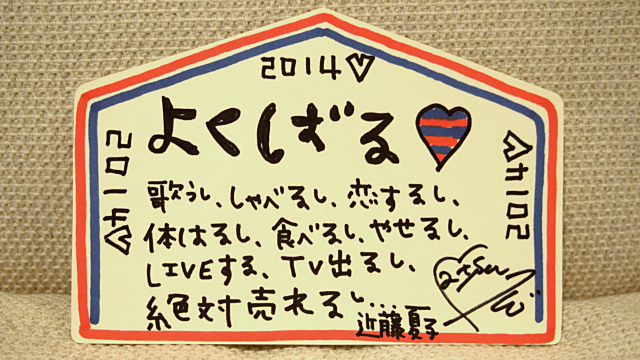 2014♡
よくばる
2014♡
2014♡
歌うし、しゃべるし、恋するし、
体はるし、食べるし、やせるし、
LIVEする、TV出るし、
絶対売れるし…
近藤夏子